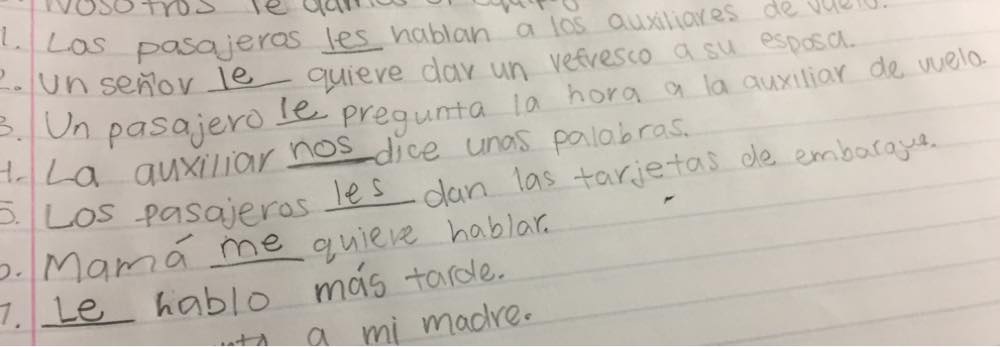 Nosotros le damos el equipo
1. Los pasajeros les hablan a los auxiliares de vuelo.
2. Un señor le quiere dar un refresco a su esposa.
3. Un pasajero le pregunta la hora a la auxiliar de vuelo.
4. La auxiliar nos dice unas palabras.
5. Los pasajeros les dan las tarjetas de embarque.
6. Mamá me quiere hablar.
7. Le hablo más tarde.
a mi madre.